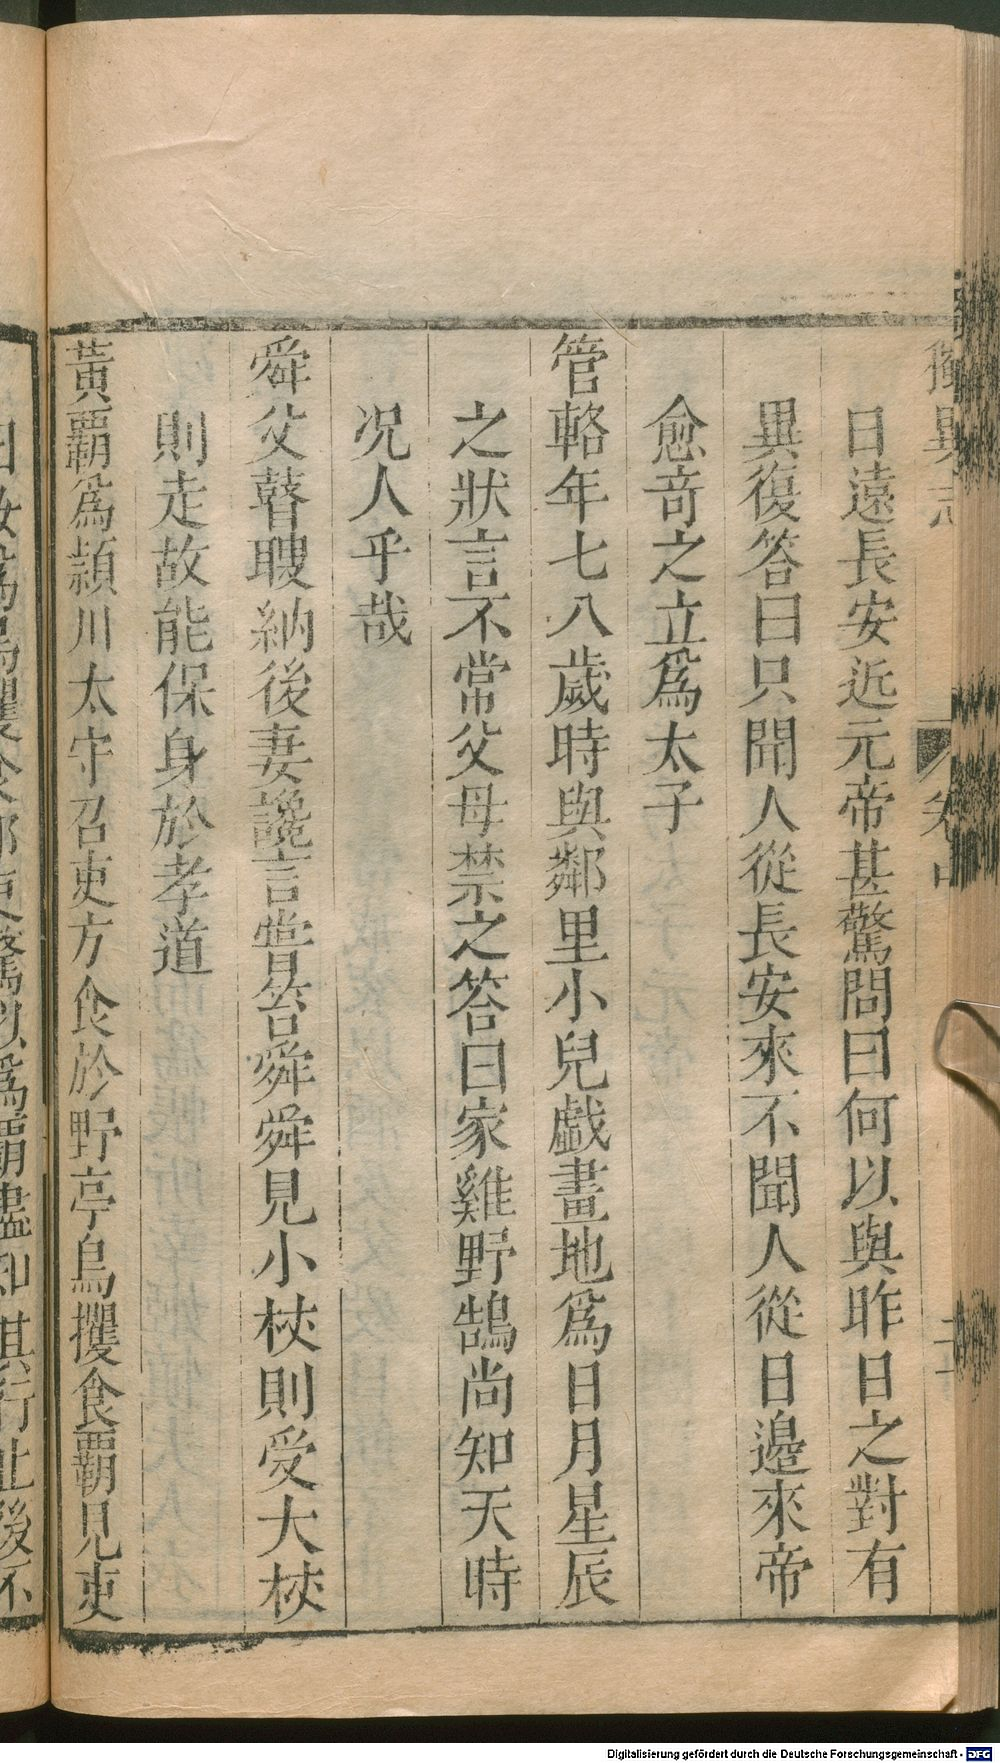 獨異志
卷中
日遠長安近元帝甚驚問曰何以與昨日之對有
異復答曰只聞人從長安來不聞人從日邊來帝
愈奇之立爲太子
管輅年七八歲時與鄰里小兒戲畫地爲日月星辰
之狀言不常父母禁之答曰家雞野鵠尚知天時
况人乎哉
舜父瞽瞍納後妻讒言嘗笞舜舜見小杖則受大杖
則走故能保身於孝道
黃霸爲潁川太守召吏方食於野亭烏攫食霸見吏
曰汝爲烏攫食郎吏驚以爲霸盡知其行止後不
Digitalisierung gefördert durch die Deutsche Forschungsgemeinschaft - DFG